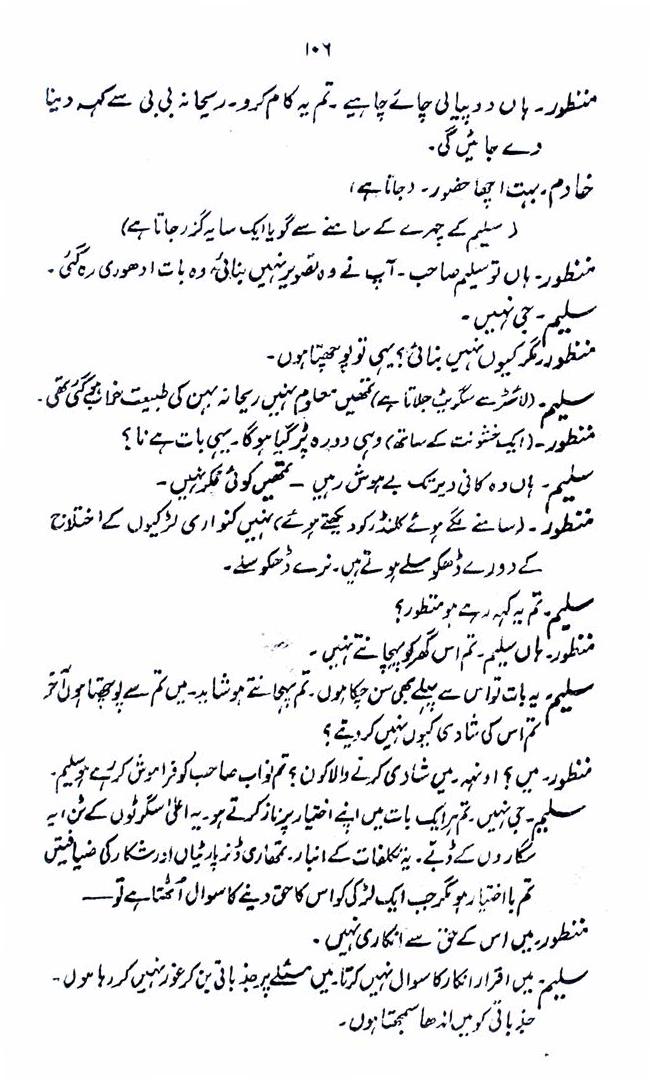 ۱۰۶
منظور۔ ہاں دو پیالی چائے چاہیے۔ تم یہ کام کرو۔ ریحانہ بی بی سے کہہ دینا
دے جائیں گی۔
خادم۔ بہت اچھا حضور۔ (جاتا ہے)
(سلیم کے چہرے کے سامنے سے گویا ایک سایہ گزر جاتا ہے)
منظور۔ ہاں تو سلیم صاحب۔ آپ نے وہ تصویر نہیں بنائی، وہ بات ادھوری رہ گئی۔
سلیم۔ جی نہیں۔
منظور۔ مگر کیوں نہیں بنائی؟ یہی تو پوچھتا ہوں۔
سلیم۔ (لائٹر سے سگریٹ جلاتا ہے) تمھیں معلوم نہیں ریحانہ بہن کی طبیعت خراب ہو گئی تھی۔
منظور۔ (ایک خشونت کے ساتھ) وہی دورہ پڑ گیا ہوگا۔ یہی بات ہے نا؟
سلیم۔ ہاں وہ کافی دیر تک بے ہوش رہیں ـ تمھیں کوئی فکر نہیں۔
منظور۔ (سامنے لگے ہوئے کلنڈر کو دیکھتے ہوئے) نہیں کنواری لڑکیوں کے اختلاج
کے دورے ڈھکوسلے ہوتے ہیں۔ نرے ڈھکوسلے۔
سلیم۔ تم یہ کہہ رہے ہو منظور؟
منظور۔ ہاں سلیم۔ تم اس گھر کو پہچانتے نہیں۔
سلیم۔ یہ بات تو اس سے پہلے بھی سن چکا ہوں۔ تم پہچانتے ہو شاید۔ میں تم سے پوچھتا ہوں آخر
تم اس کی شادی کیوں نہیں کر دیتے؟
منظور۔ میں؟ اونہہ۔ میں شادی کرنے والا کون؟ تم نواب صاحب کو فراموش کر رہے ہو سلیم۔
سلیم۔ جی نہیں۔ تم ہر ایک بات میں اپنے اختیار پر ناز کرتے ہو۔ یہ اعلیٰ سگرٹوں کے ٹن، یہ
سگاروں کے ڈبے۔ یہ تکلفات کے انبار۔ تمھاری ڈنر پارٹیاں اور شکار کی ضیافتیں
تم با اختیار ہو مگر جب ایک لڑکی کو اس کا حق دینے کا سوال اُٹھتا ہے تو ـــــ
منظور۔ میں اس کے حق سے انکاری نہیں۔
سلیم۔ میں اقرار انکار کا سوال نہیں کرتا۔ میں مسئلے پر جذباتی بن کر غور نہیں کر رہا ہوں۔
جذباتی کو میں اندھا سمجھتا ہوں۔